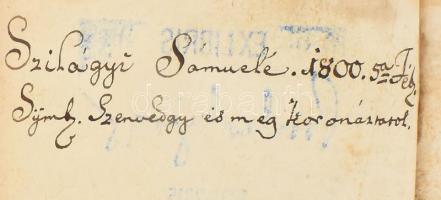 Szilágyi Samuelé. 1800. 5a Feb.
Symb. Szenvedgy és meg koronáztatol.
EX LIBRIS